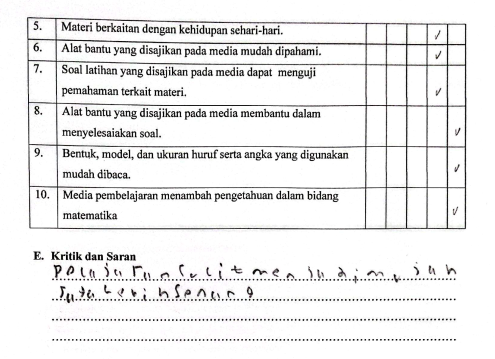 5. Materi berkaitan dengan kehidupan sehari-hari. ✓
6. Alat bantu yang disajikan pada media mudah dipahami. ✓
7. Soal latihan yang disajikan pada media dapat menguji
pemahaman terkait materi. ✓
8. Alat bantu yang disajikan pada media membantu dalam
menyelesaiakan soal. ✓
9. Bentuk, model, dan ukuran huruf serta angka yang digunakan
mudah dibaca. ✓
10. Media pembelajaran menambah pengetahuan dalam bidang
matematika ✓
E. Kritik dan Saran
menjadi